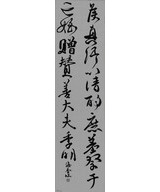 侯真卿以清酌庶羞祭于
亡姪贈贊善大夫季明